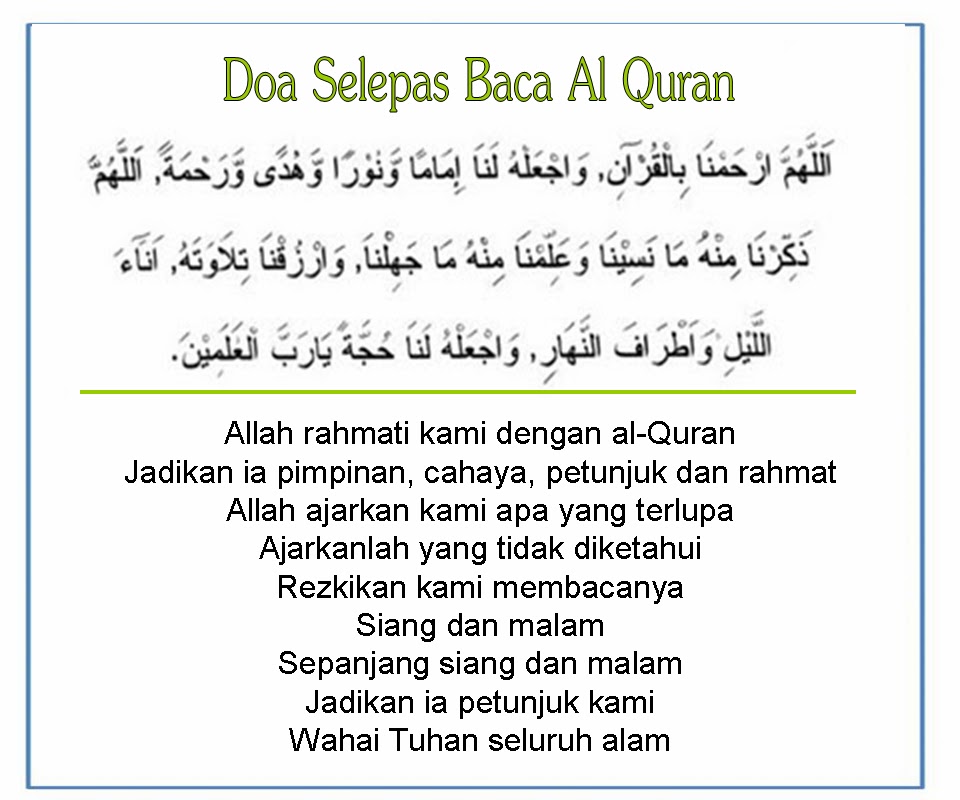 Doa Selepas Baca Al Quran
اَللَّهُمَّ ارْحَمْنَا بِالْقُرْآنِ, وَاجْعَلْهُ لَنَا إِمَامًا وَّنُوْرًا وَّهُدًى وَّرَحْمَةً, اَللَّهُمَّ
ذَكِّرْنَا مِنْهُ مَا نَسِيْنَا وَعَلِّمْنَا مِنْهُ مَا جَهِلْنَا, وَارْزُقْنَا تِلاَوَتَهُ, اَنَآءَ
اللَّيْلِ وَاَطْرَافَ النَّهَارِ, وَاجْعَلْهُ لَنَا حُجَّةً يَارَبَّ الْعٰلَمِيْنَ.
Allah rahmati kami dengan al-Quran
Jadikan ia pimpinan, cahaya, petunjuk dan rahmat
Allah ajarkan kami apa yang terlupa
Ajarkanlah yang tidak diketahui
Rezkikan kami membacanya
Siang dan malam
Sepanjang siang dan malam
Jadikan ia petunjuk kami
Wahai Tuhan seluruh alam